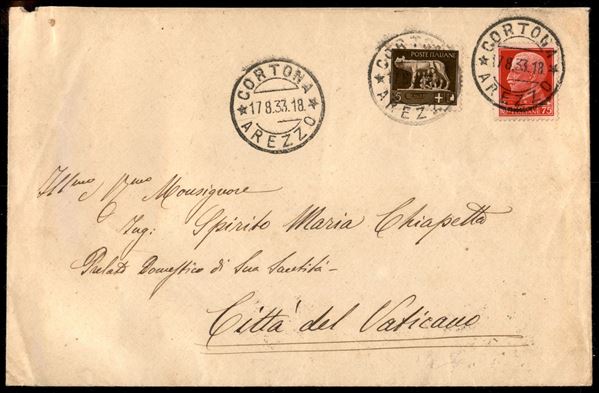 CORTONA
17 8.33.18
AREZZO
CORTO
AREZ
POSTE ITALIANE
5
CORTONA
17 8.33.18
AREZZO
75
Ill.mo Monsignore
Ing: Spirito Maria Chiapetta
Prelato Domestico di Sua Santità
Città del Vaticano